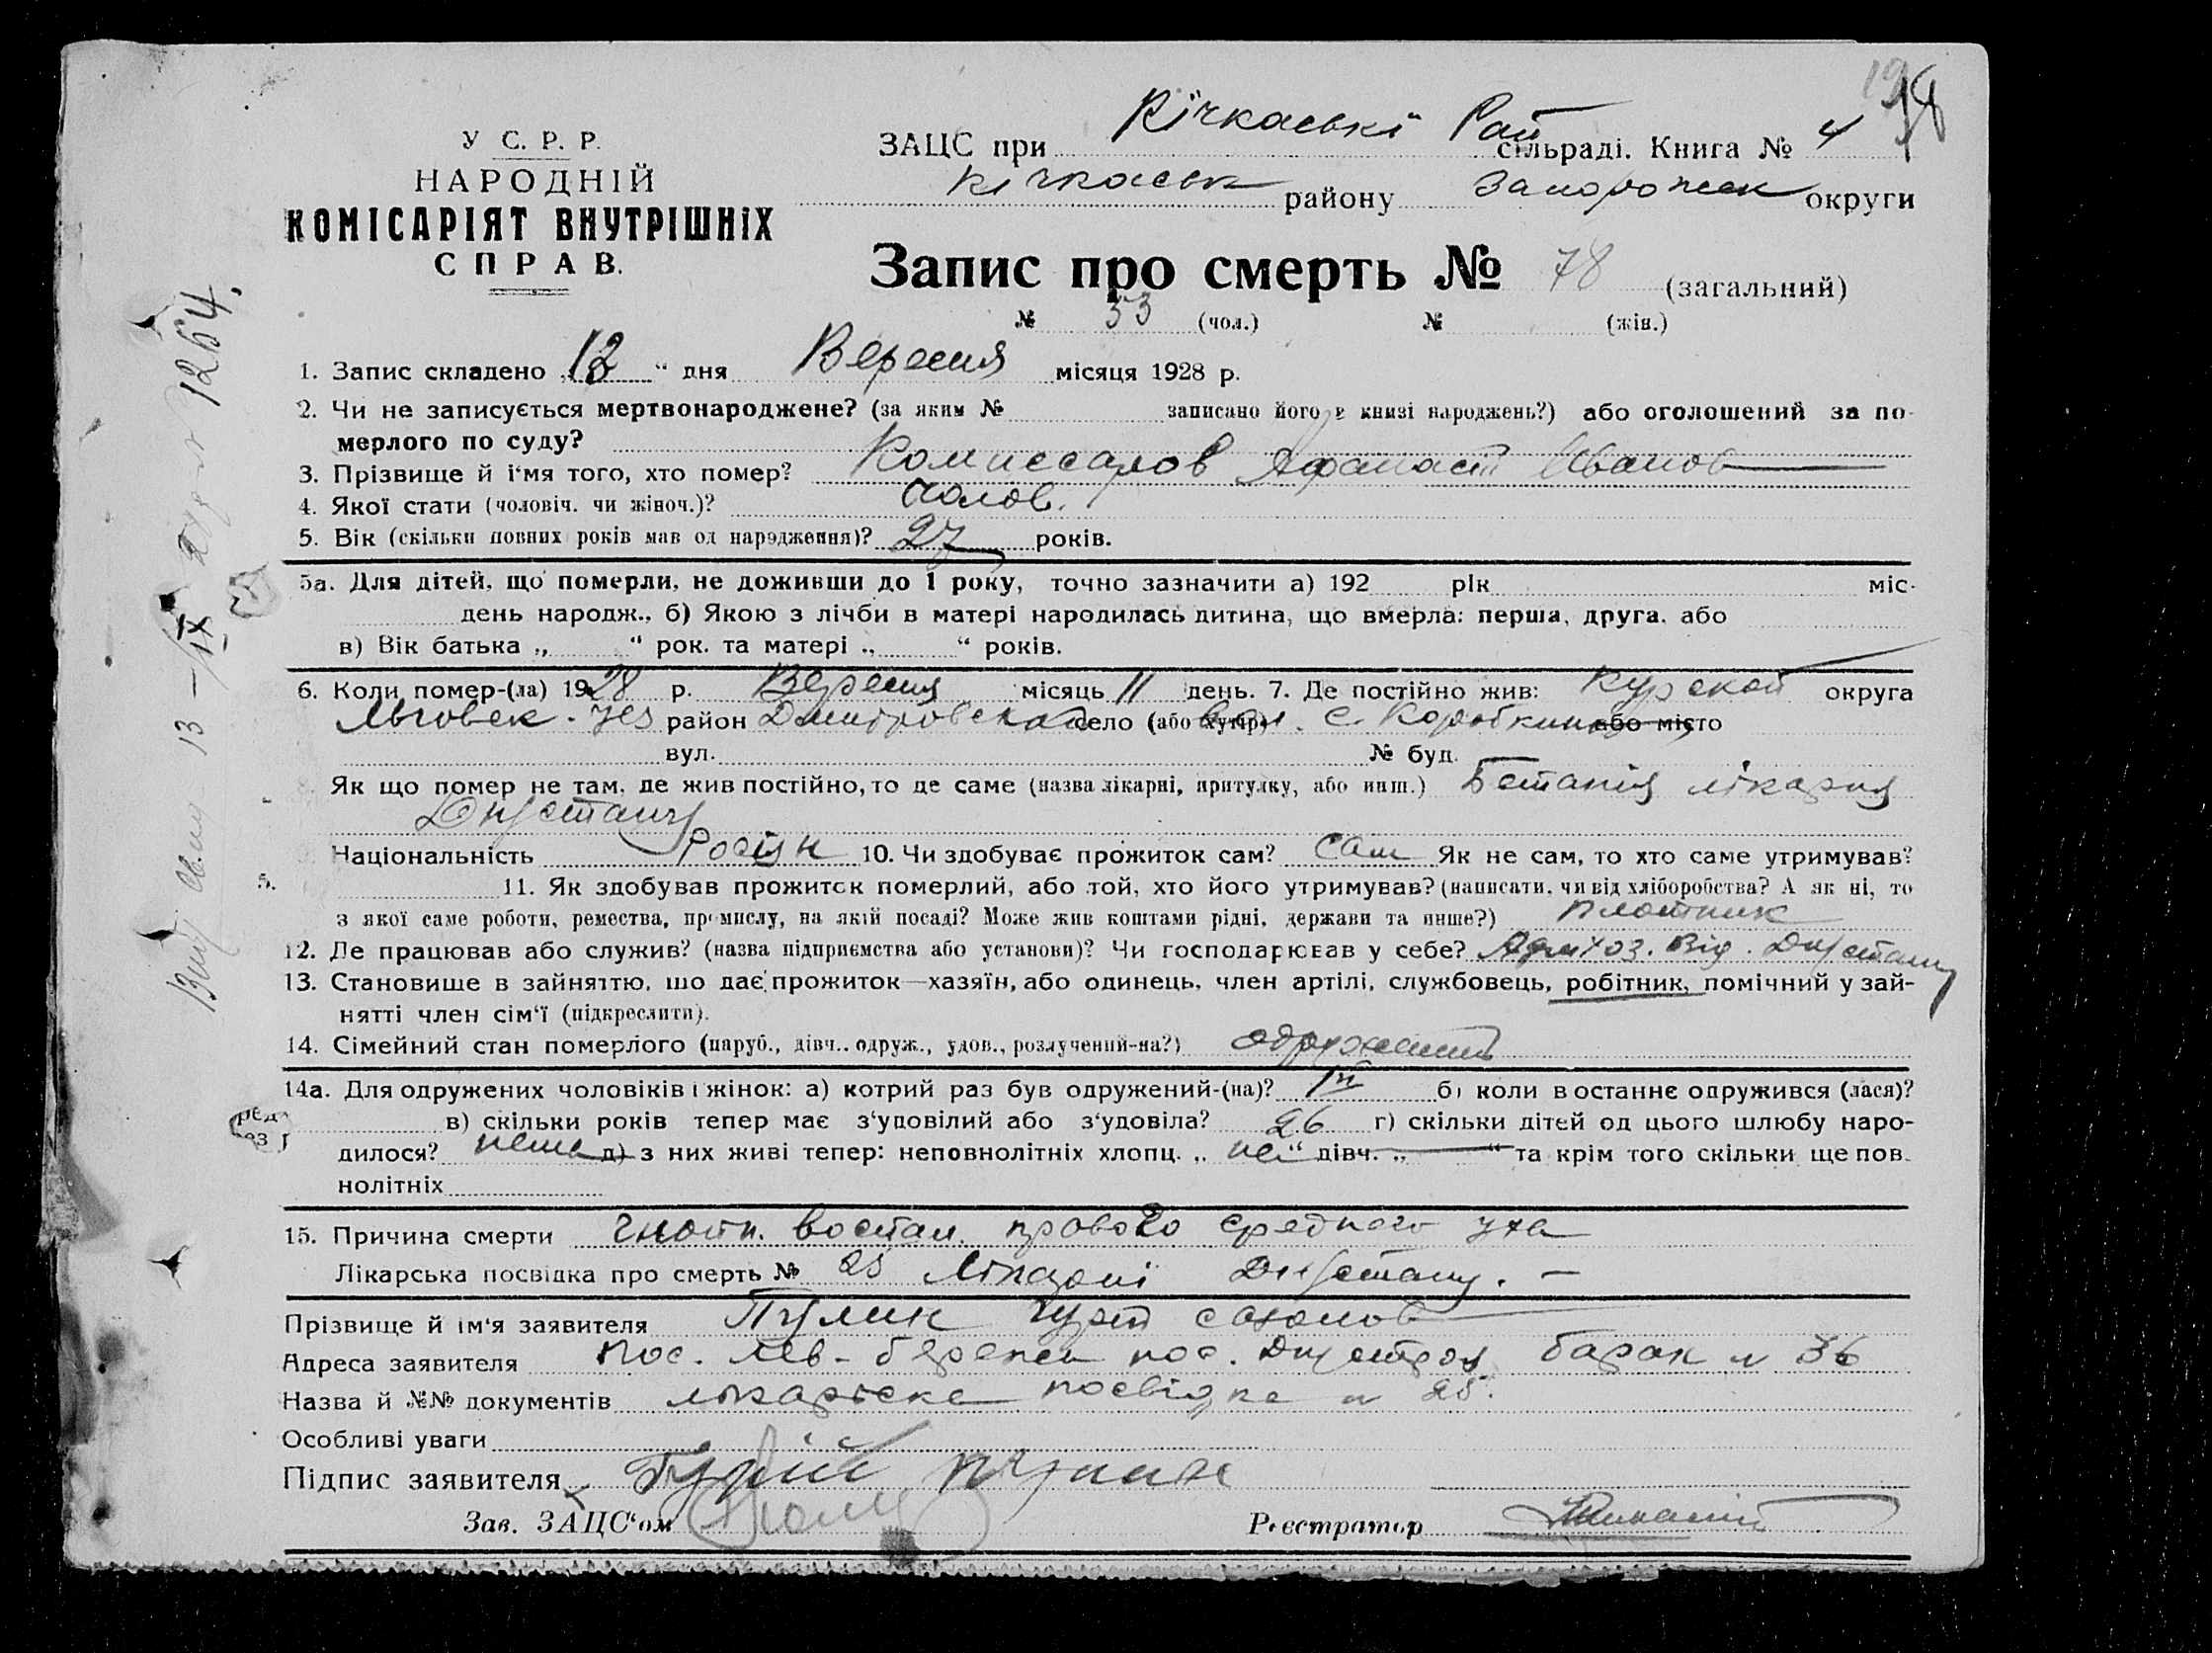 У С. Р. Р.
НАРОДНІЙ
КОМІСАРІЯТ ВНУТРІШНІХ
СПРАВ.
ЗАЦС при Кічкаські Рай сільраді. Книга № 4
Кічкаськ району Запорожск округи
Запис про смерть № 78 (загальний)
№ 53 (чол.) № (жін.)
1. Запис складено „ " дня Вересня місяця 1928 р.
2. Чи не записується мертвонароджене? (за яким № записано його в книзі народжень?) або оголошений за по-
мерлого по суду?
3. Прізвище й і'мя того, хто помер? Комиссаров Афанасій Иванов
4. Якої стати (чоловіч. чи жіноч.)? Чолов.
5. Вік (скільки повних років мав од народження)? 27 років.
5а. Для дітей, що померли, не доживши до 1 року, точно зазначити а) 192 рік міс.
день народж., б) Якою з лічби в матері народилась дитина, що вмерла: перша, друга, або
в) Вік батька „ " рок. та матері „ " років.
6. Коли помер-(ла) 1928 р. Вересня місяць 11 день. 7. Де постійно жив: Курской округа
Льговск. уез район Дмитровской село (або хутір) вол. с. Коробкино або місто
вул. № буд.
Як що помер не там, де жив постійно, то де саме (назва лікарні, притулку, або инш.) лікарня
Днєпстану
Національність Росіян 10. Чи здобуває прожиток сам? Сам Як не сам, то хто саме утримував?
11. Як здобував прожиток померлий, або той, хто його утримував? (написати, чи від хліборобства? А як ні, то
з якої саме роботи, ремества, промислу, на якій посаді? Може жив коштами рідні, держави та инше?) плотник
12. Де працював або служив? (назва підприємства або установи)? Чи господарював у себе? Адм хоз. Від.
13. Становище в зайняттю, що дає прожиток—хазяїн, або одинець, член артілі, службовець, робітник, помічний у зай-
нятті член сім'ї (підкреслити).
14. Сімейний стан померлого (паруб., дівч., одруж., удов., розлучений-на?) одружений
14а. Для одружених чоловіків і жінок: а) котрий раз був одружений-(на)? 1й б) коли в останнє одружився (лася)?
в) скільки років тепер має з'удовілий або з'удовіла? 26 г) скільки дітей од цього шлюбу наро-
дилося? нема д) з них живі тепер: неповнолітніх хлопц. „ " дівч. „ " та крім того скільки ще пов-
нолітніх
15. Причина смерти гнойн. воспал. правого среднего уха
Лікарська посвідка про смерть № 25 Лікарні
Прізвище й ім'я заявителя
Адреса заявителя пос. барак № 36
Назва й №№ документів лікарське посвідка № 25.
Особливі уваги
Підпис заявителя
Зав. ЗАЦС'ом Реєстратор